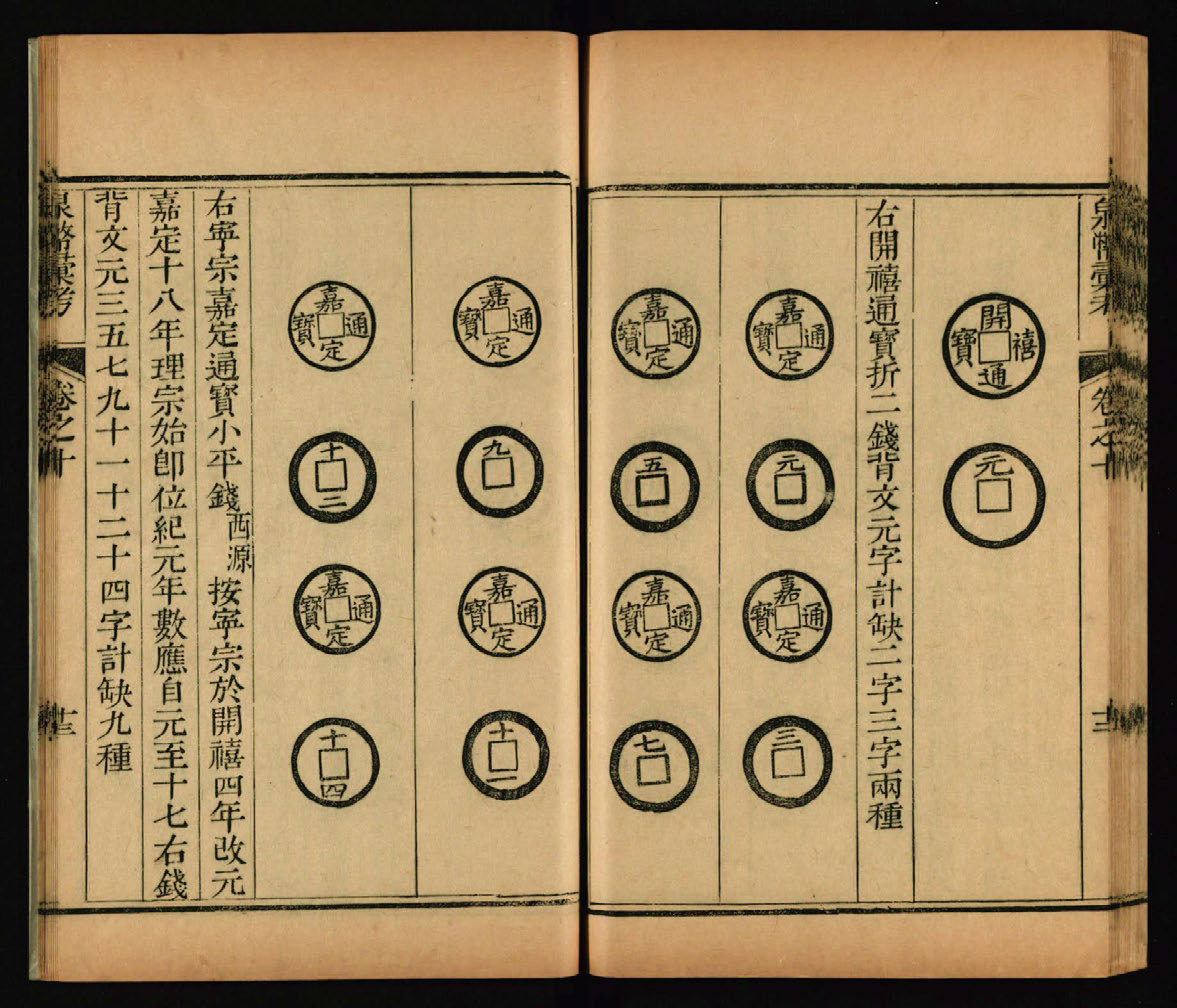 泉幣彙考
卷之十
十二
開通禧寶
元
右開禧通寶折二錢背文元字計缺二字三字兩種
嘉定通寶
元
嘉定通寶
三
嘉定通寶
五
嘉定通寶
七
嘉定通寶
九
嘉定通寶
十一
嘉定通寶
十二
嘉定通寶
十四
右寧宗嘉定通寶小平錢西源按寧宗於開禧四年改元
嘉定十八年理宗始即位紀元年數應自元至十七右錢
背文元三五七九十一十二十四字計缺九種
泉幣彙考
卷之十
十三